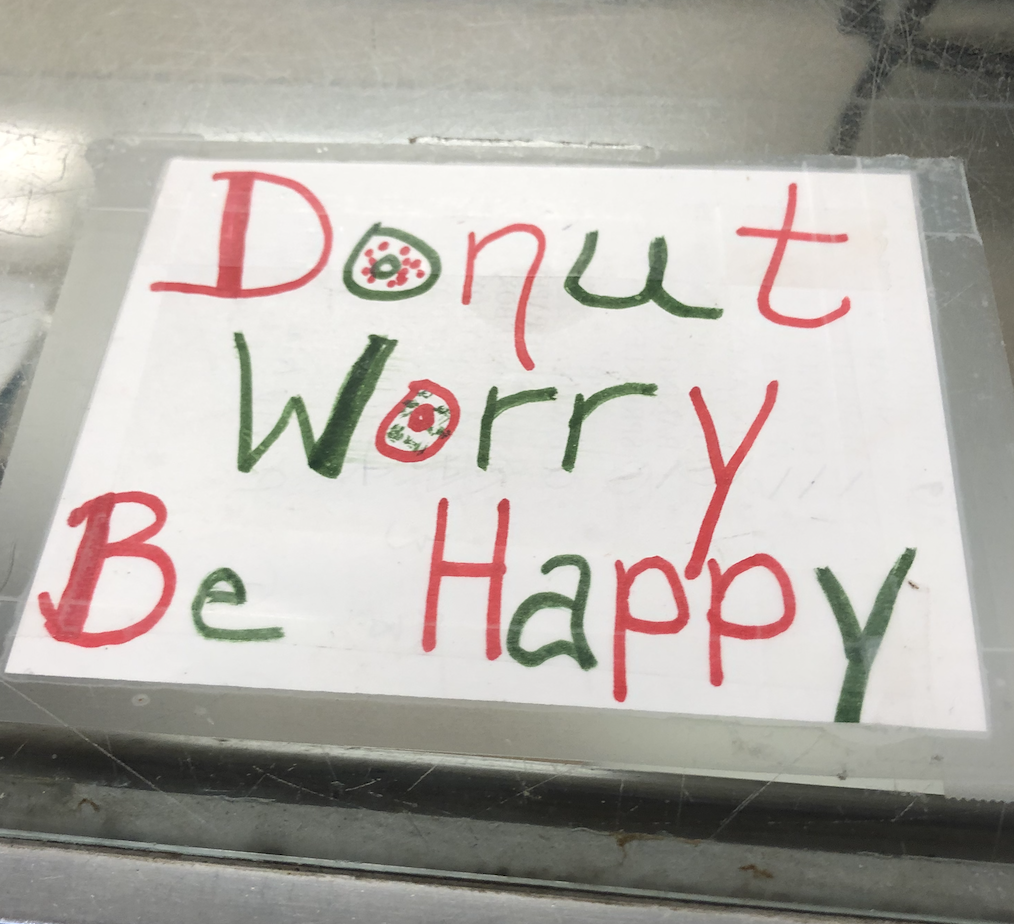 Donut
Worry
Be Happy